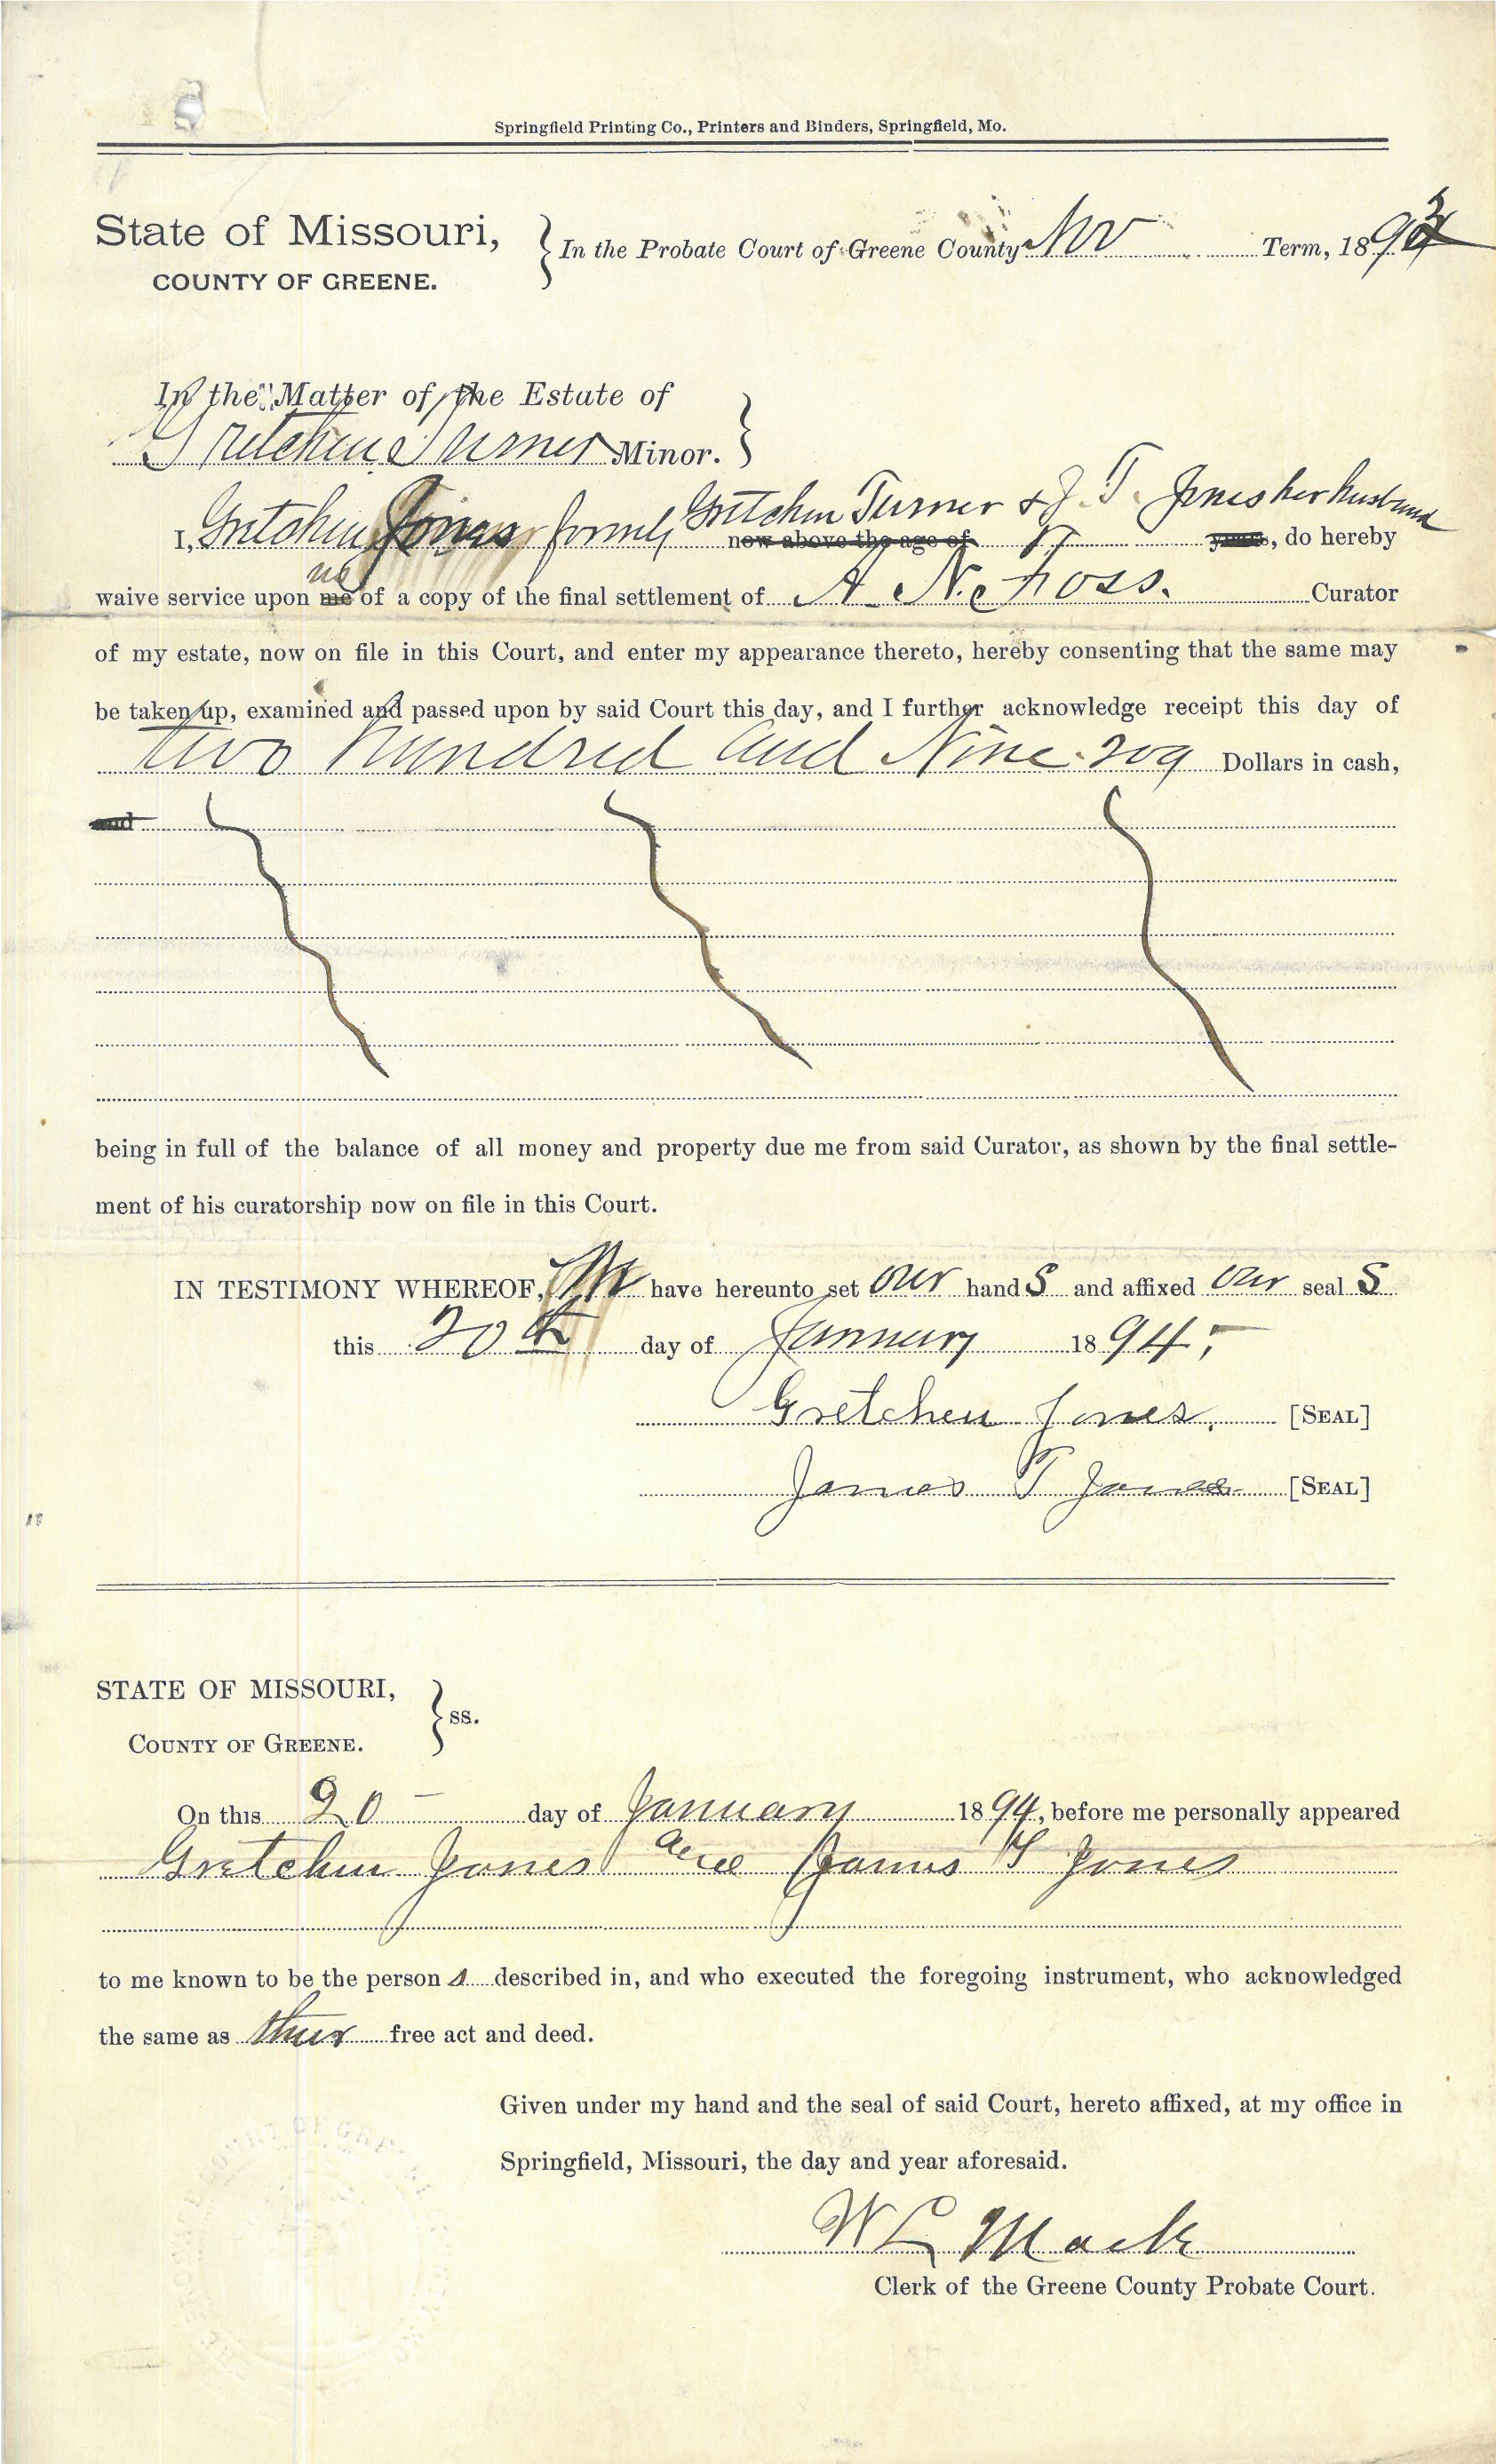 Springfield Printing Co., Printers and Binders, Springfield, Mo.
State of Missouri,
COUNTY OF GREENE.
In the Probate Court of Greene County Nov Term, 1893
In the Matter of the Estate of
Gretchen Turner Minor.
I, Gretchen Jones formerly Gretchen Turner & J. T. Jones her husband
now above the age of years, do hereby
us
waive service upon me of a copy of the final settlement of A. N. Foss. Curator
of my estate, now on file in this Court, and enter my appearance thereto, hereby consenting that the same may
be taken up, examined and passed upon by said Court this day, and I further acknowledge receipt this day of
two hundred and Nine 209 Dollars in cash,
and
being in full of the balance of all money and property due me from said Curator, as shown by the final settle-
ment of his curatorship now on file in this Court.
IN TESTIMONY WHEREOF, We have hereunto set our hand s and affixed our seal s
this 20th day of January 1894,
Gretchen Jones. [SEAL]
James T Jones [SEAL]
STATE OF MISSOURI,
COUNTY OF GREENE.
ss.
On this 20 - day of January 1894, before me personally appeared
Gretchen Jones and James T Jones
to me known to be the person s described in, and who executed the foregoing instrument, who acknowledged
the same as their free act and deed.
Given under my hand and the seal of said Court, hereto affixed, at my office in
Springfield, Missouri, the day and year aforesaid.
W L Mack
Clerk of the Greene County Probate Court.